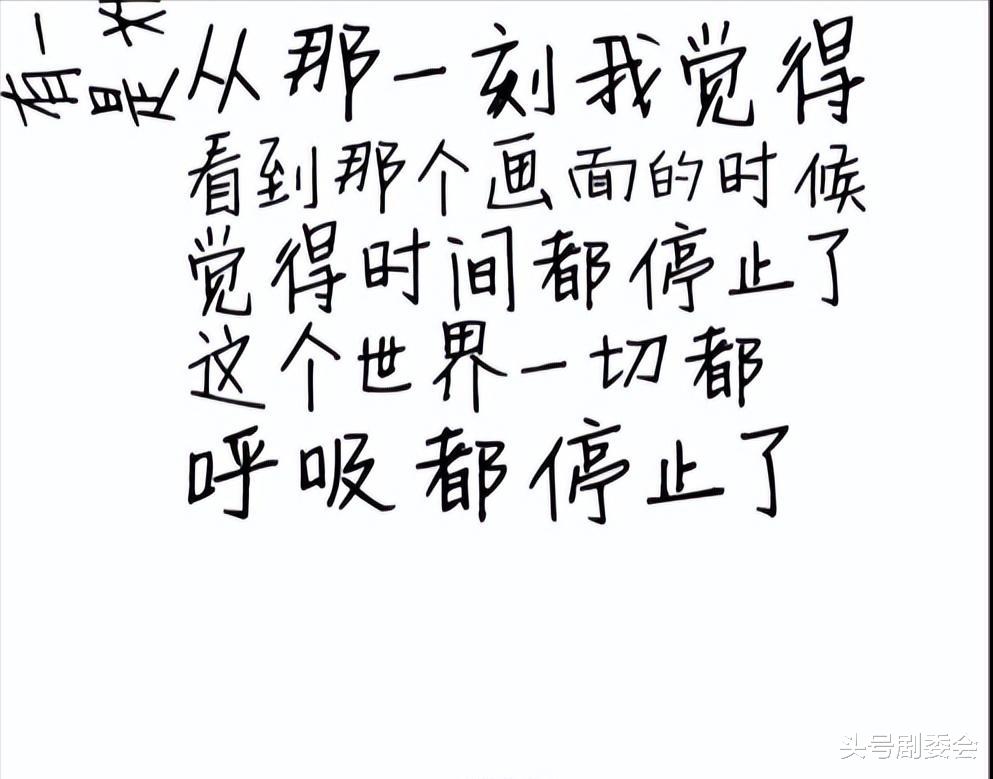 有一
是
从那一刻我觉得
看到那个画面的时候
觉得时间都停止了
这个世界一切都
呼吸都停止了
头号剧委会